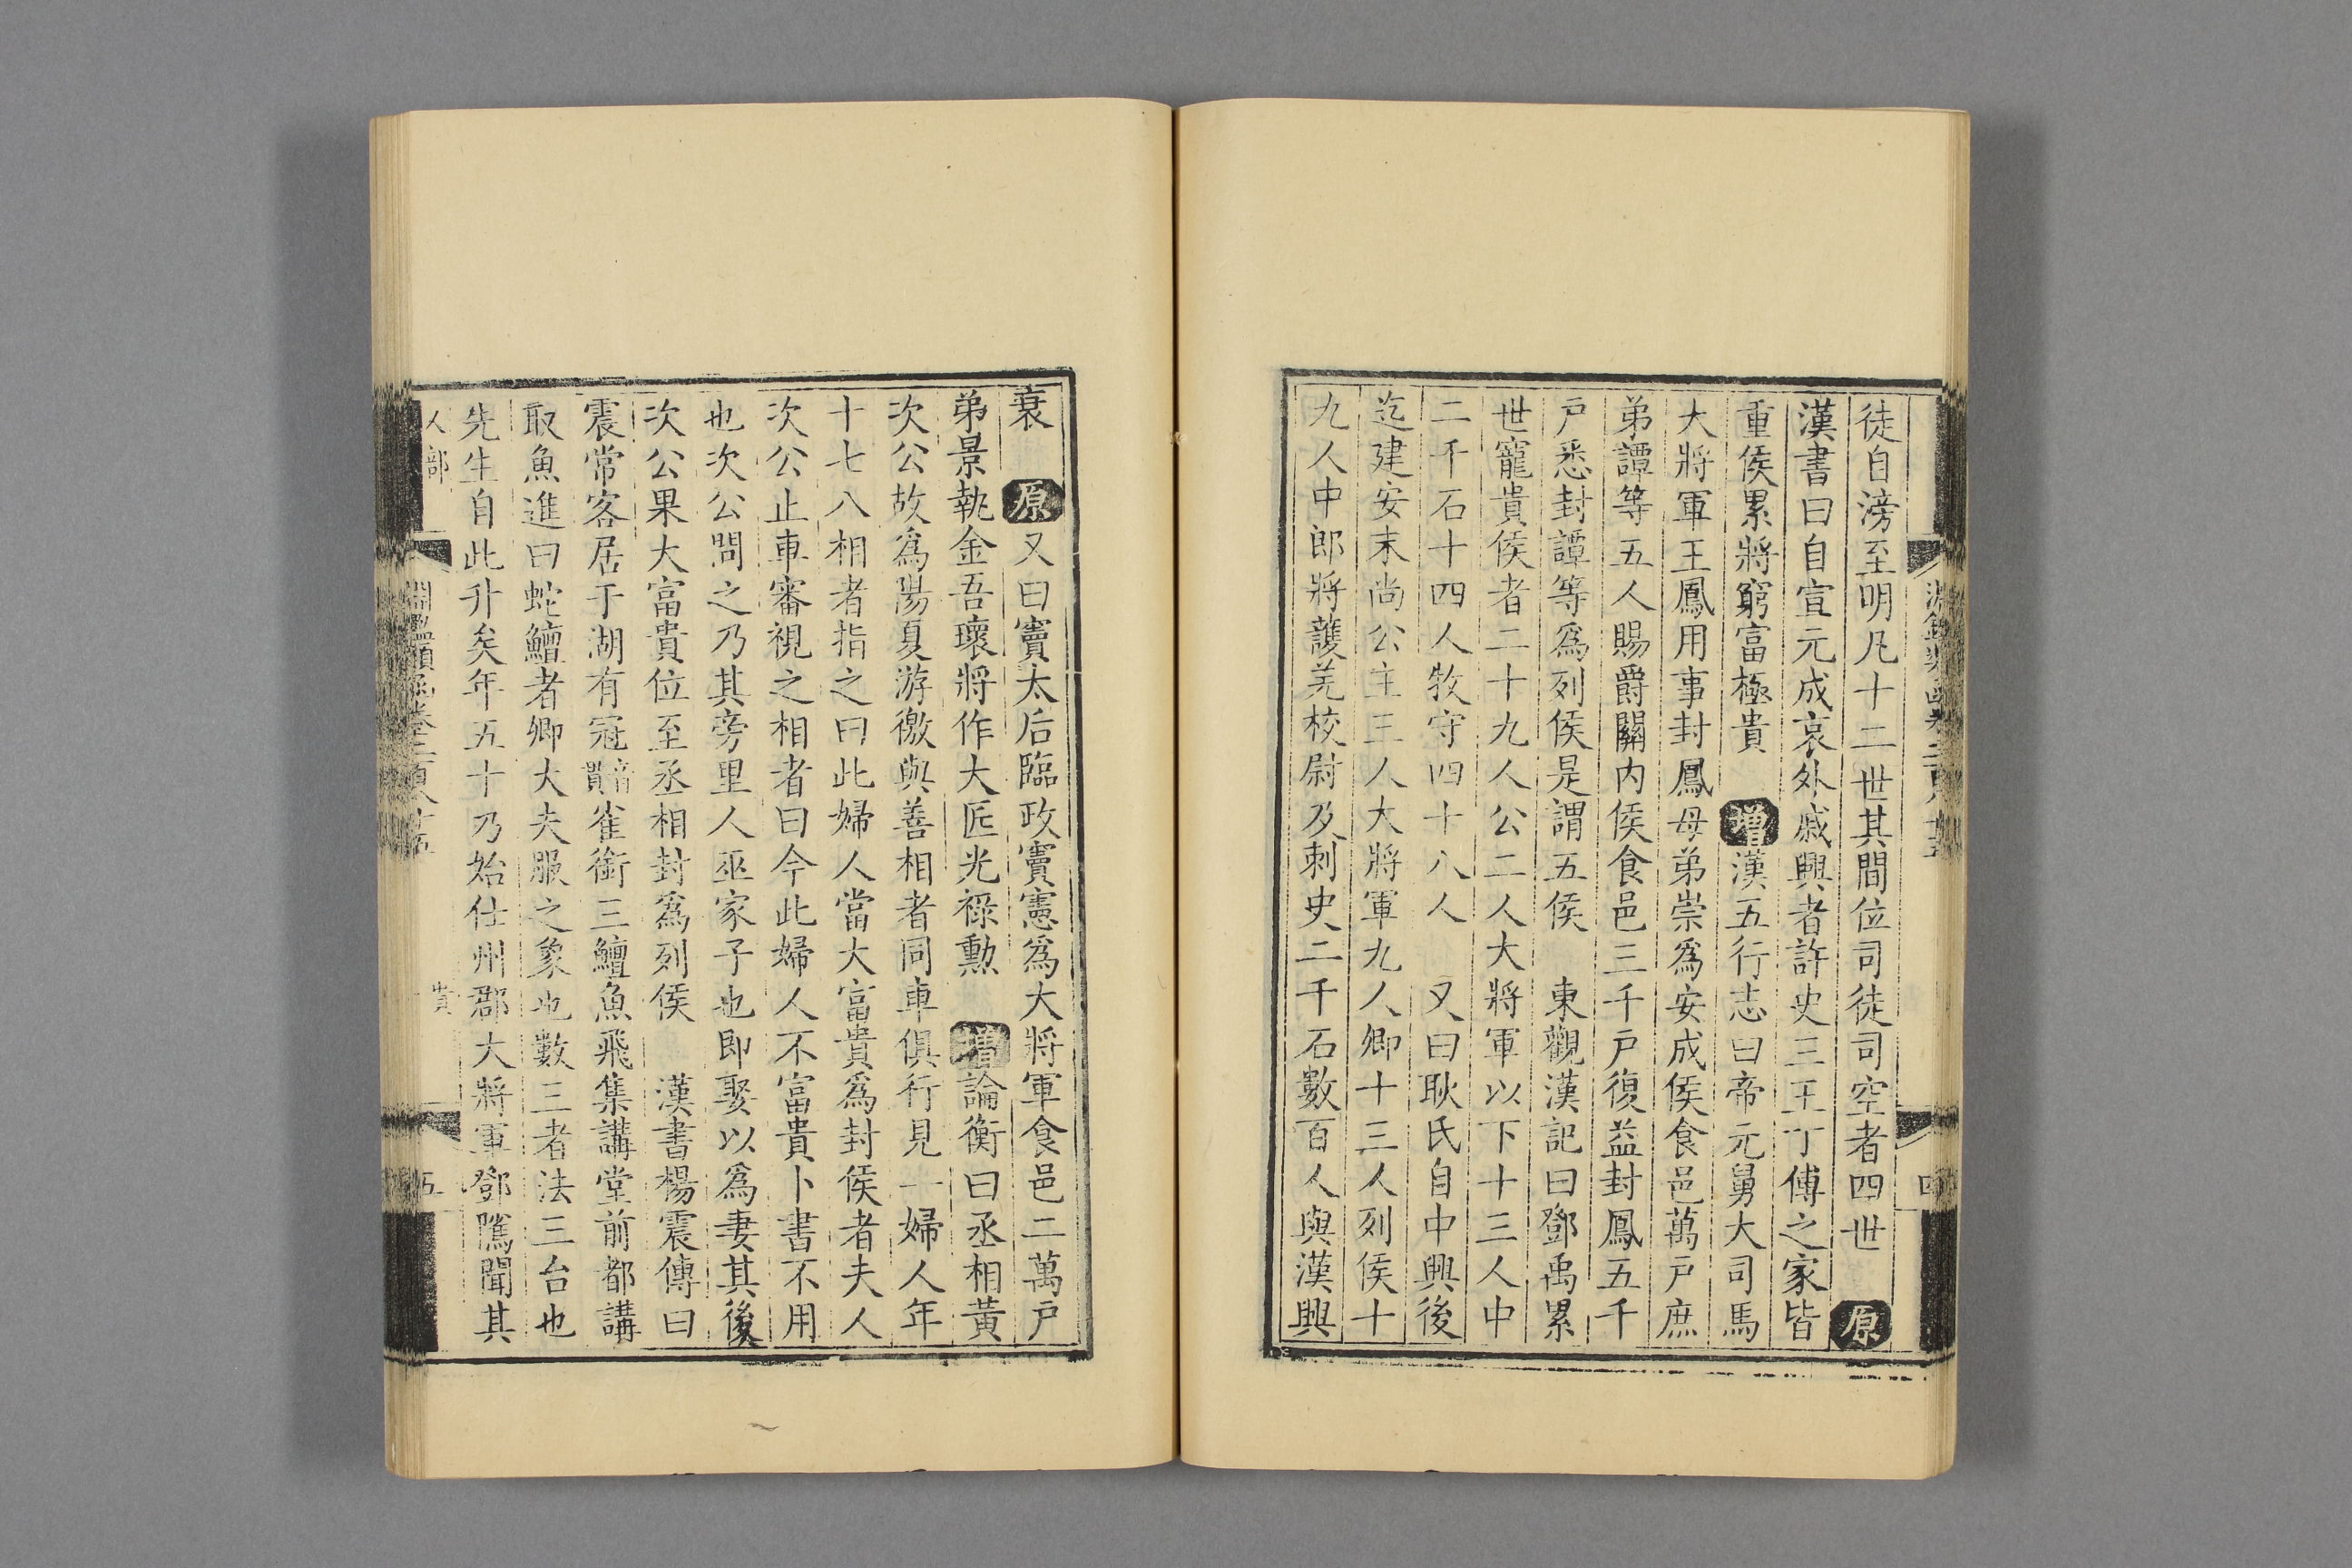 徒自滂至明凡十二世其間位司徒司空者四世　原
漢書曰自宣元成哀外戚興者許史三王丁傅之家皆
重侯累將窮富極貴　增漢五行志曰帝元舅大司馬
大將軍王鳳用事封鳳母弟崇為安成侯食邑萬戶庶
弟譚等五人賜爵關內侯食邑三千戶復益封鳳五千
戶悉封譚等為列侯是謂五侯　東觀漢記曰鄧禹累
世寵貴侯者二十九人公二人大將軍以下十三人中
二千石十四人牧守四十八人　又曰耿氏自中興後
迄建安末尚公主三人大將軍九人卿十三人列侯十
九人中郎將護羌校尉及刺史二千石數百人與漢興
四
衰　原又曰竇太后臨政竇憲為大將軍食邑二萬戶
弟景執金吾瓌將作大匠光祿勳　增論衡曰丞相黃
次公故為陽夏游徼與善相者同車俱行見一婦人年
十七八相者指之曰此婦人當大富貴為封侯者夫人
次公止車審視之相者曰今此婦人不富貴卜書不用
也次公問之乃其旁里人巫家子也即娶以為妻其後
次公果大富貴位至丞相封為列侯　漢書楊震傳曰
震常客居于湖有冠音貫雀銜三鱣魚飛集講堂前都講
取魚進曰蛇鱣者卿大夫服之象也數三者法三台也
先生自此升矣年五十乃始仕州郡大將軍鄧騭聞其
人部
淵鑑類函卷二百八十五
貴
五